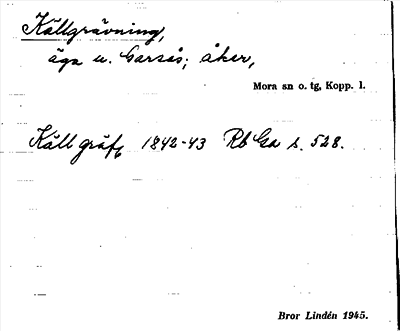 Källgrävning,
äga u. Garsås; åker,
Mora sn o. tg, Kopp. l.
Källgräf, 1842-43 Rb Ga s. 528.
Bror Lindén 1945.